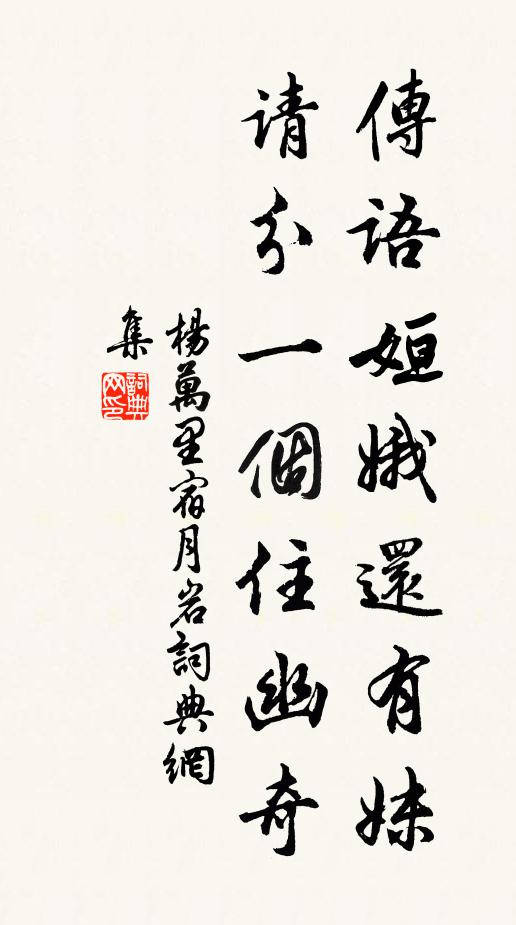 傳語姮娥還有妹
請分一個住幽奇
楊萬里宿月岩詞典網
集
詞典
网印